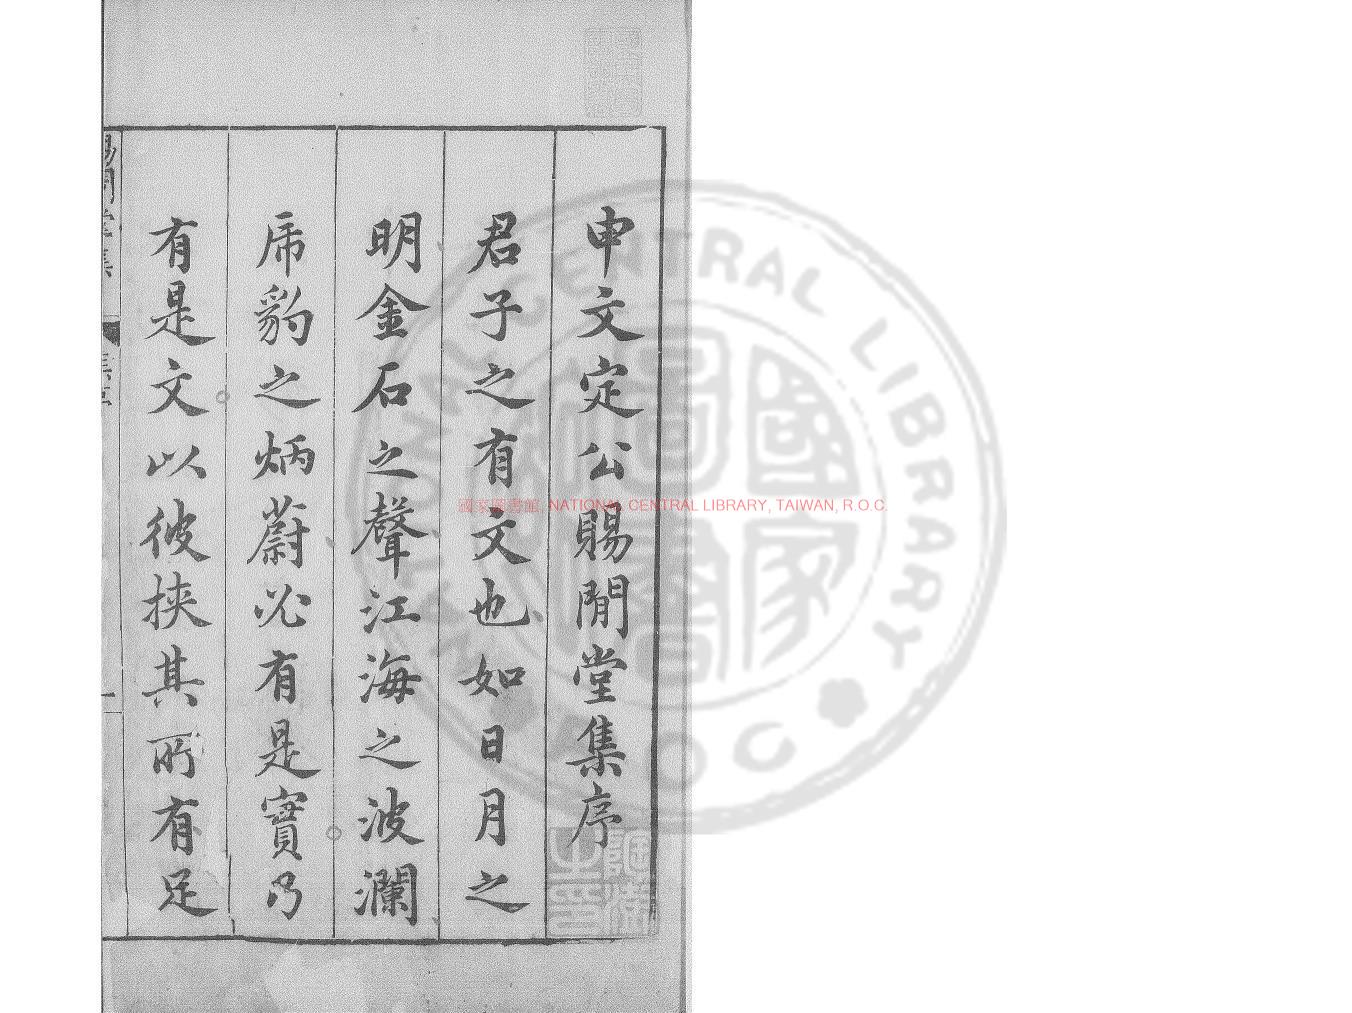 申文定公賜閒堂集序
君子之有文也如日月之
明金石之聲江海之波瀾
席豹之炳蔚必有是實乃
有是文以彼挾其所有足
國家圖書館, NATIONAL CENTRAL LIBRARY, TAIWAN, R.O.C.
NATIONAL CENTRAL LIBRARY
R O C
國家圖書